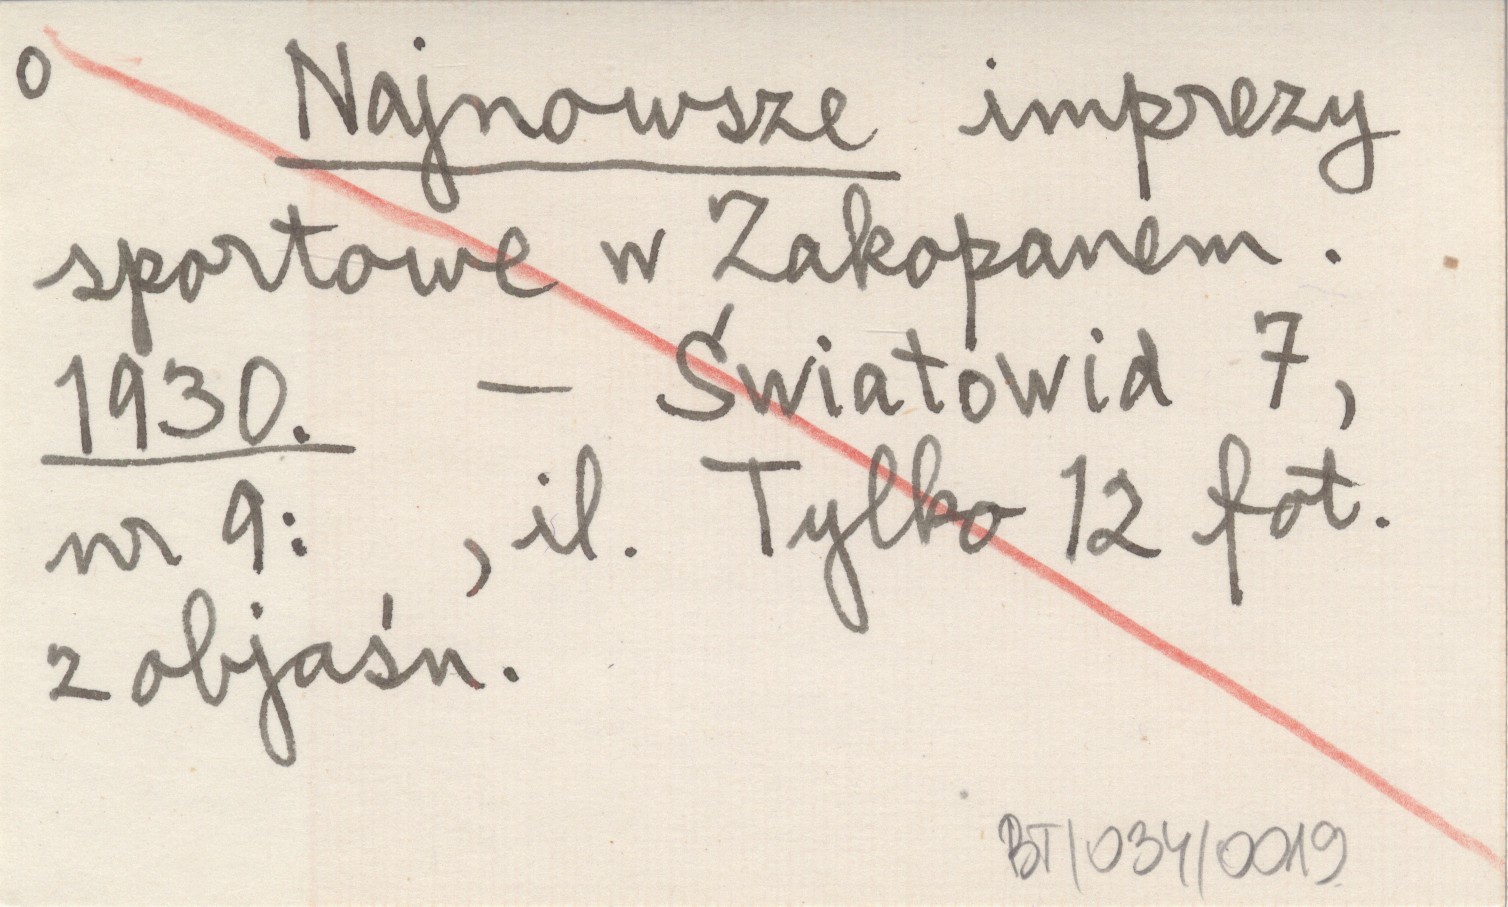 o Najnowsze imprezy
sportowe w Zakopanem.
1930. — Światowid 7,
nr 9: , il. Tylko 12 fot.
z objaśn.
BT/034/0019